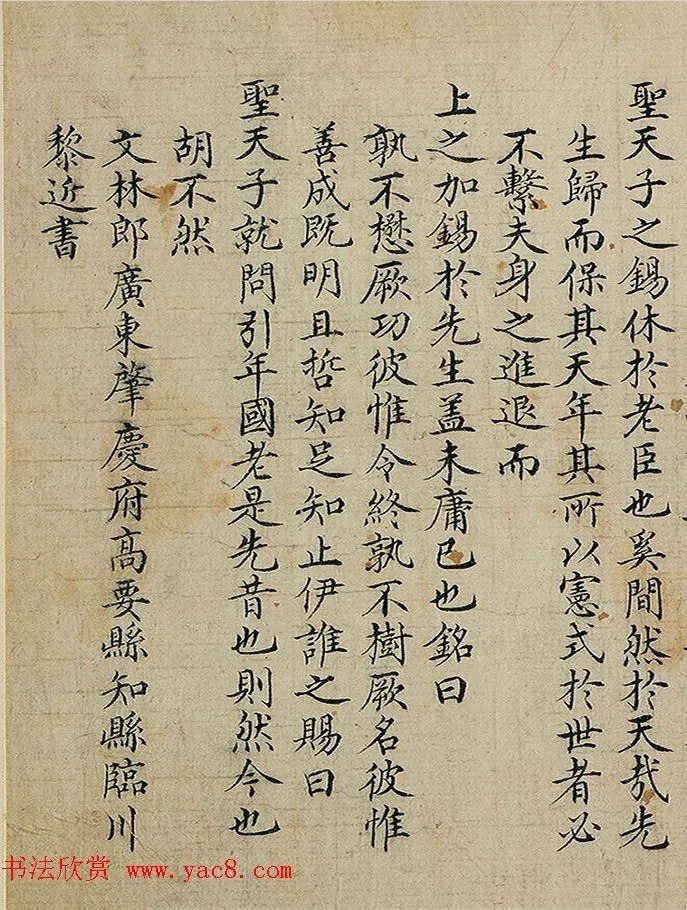 聖天子之錫休於老臣也奚間然於天哉先
生歸而保其天年其所以憲式於世者必
不繫夫身之進退而
上之加錫於先生蓋未庸已也銘曰
孰不懋厥功彼惟令終孰不樹厥名彼惟
善成既明且哲知足知止伊誰之賜曰
聖天子就問引年國老是先昔也則然今也
胡不然
文林郎廣東肇慶府高要縣知縣臨川
黎近書
书法欣赏 www.yac8.com